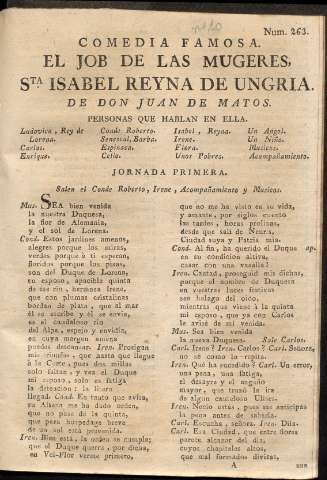 Num. 263.
COMEDIA FAMOSA.
EL JOB DE LAS MUGERES,
STA ISABEL REYNA DE UNGRIA.
DE DON JUAN DE MATOS.
PERSONAS QUE HABLAN EN ELLA.
Ludovico, Rey de Lorena.
Carlos.
Enrique.
Conde Roberto.
Senescal, Barba.
Espinaca.
Celio.
Isabel, Reyna.
Irene.
Flora.
Unos Pobres.
Un Angel.
Un Niño.
Musicos.
Acompañamiento.
JORNADA PRIMERA.
Salen el Conde Roberto, Irene, Acompañamiento y Musicos.
Mus. SEA bien venida
la nuestra Duquesa,
la flor de Alemania,
y el sol de Lorena.
Cond. Estos jardines amenos,
alegres porque los miras,
verdes porque á ti esperan,
floridos porque los pisas,
son del Duque de Lorena,
tu esposo, apacible quinta
de ese rio, hermosa Irene,
que con plumas cristalinas
bordan de plata, que al mar
él se escribe y él se envia,
es el caudaloso rio
del Alpa, espejo y envidia,
en cuya margen amena
puedes descansar. Iren. Prosigan
mis triunfos, que hasta que llegue
á la Corte, pues dos millas
solo faltan, y vea el Duque
mi esposo, solo es fatiga
la dilacion; la litera
llegad. Cond. En tanto que avisa,
su Alteza me ha dado orden,
que no pase de la quinta,
que para hospedage breve
de un sol está prevenida.
Iren. Bien está, la orden se cumpla;
que el Duque quiera, por dicha,
en Vei-Flor verme primero,
que no me ha visto en su vida,
y amante, por siglos cuento
las tardes, horas prolixas,
desde que salí de Neura,
Ciudad suya y Patria mia.
Cond. Al fin, ha querido el Duque ap.
en tu condicion altiva,
casar con una vasalla?
Iren. Cantad, proseguid mis dichas,
porque el nombre de Duquesa
en vuestras luces festivas
sea halago del oido,
mientras que viene á la quinta
mi esposo, que ya con Carlos
le avisé de mi venida.
Mus. Sea bien venida
la nueva Duquesa. Sale Carlos.
Carl. Irene? Iren. Carlos? Carl. Señora,
no sé como la repita.
Iren. Qué ha sucedido? Carl. Un error,
una pena, una fatiga,
el desayre y el enojo
mayor, que tomó la ira
de algun cauteloso Ulises.
Iren. Necio estás, pues me anticipas
la pena antes de saberla.
Carl. Escucha, señora. Iren. Dila.
Carl. Esa Ciudad, que entre flores
parece alcazar del dia,
cuyos chapiteles altos,
que mal formados divisas,
A